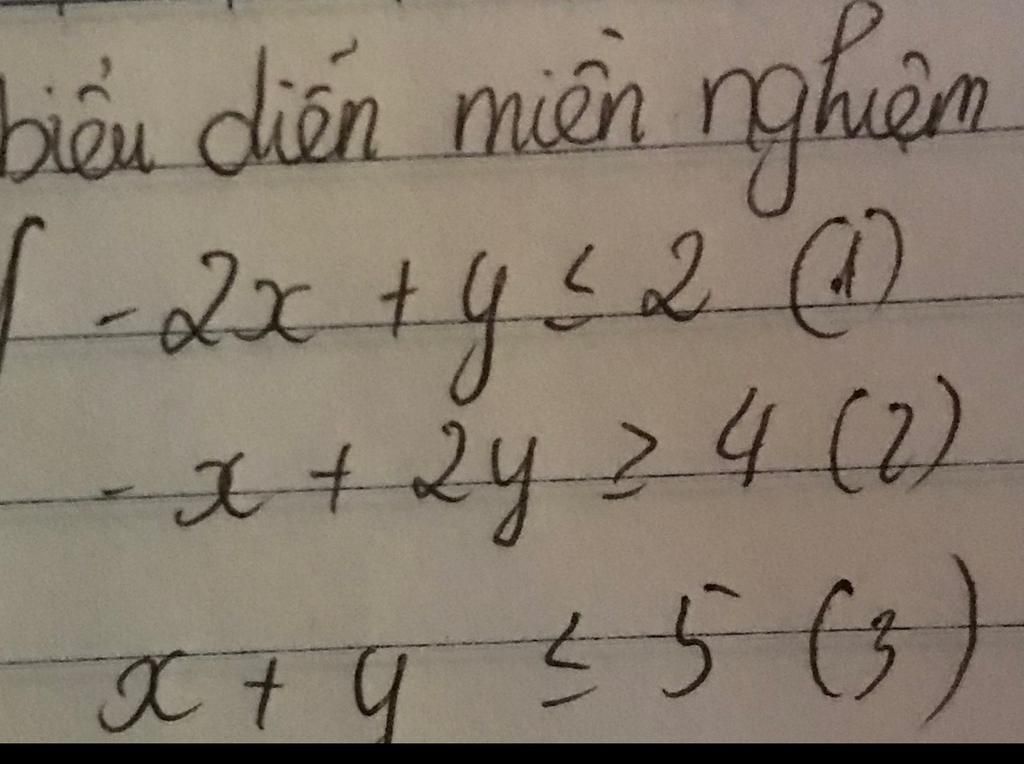 biểu diễn miền nghiệm
{ -2x + y ≤ 2 (1)
- x + 2y ≥ 4 (2)
x + y ≤ 5 (3)